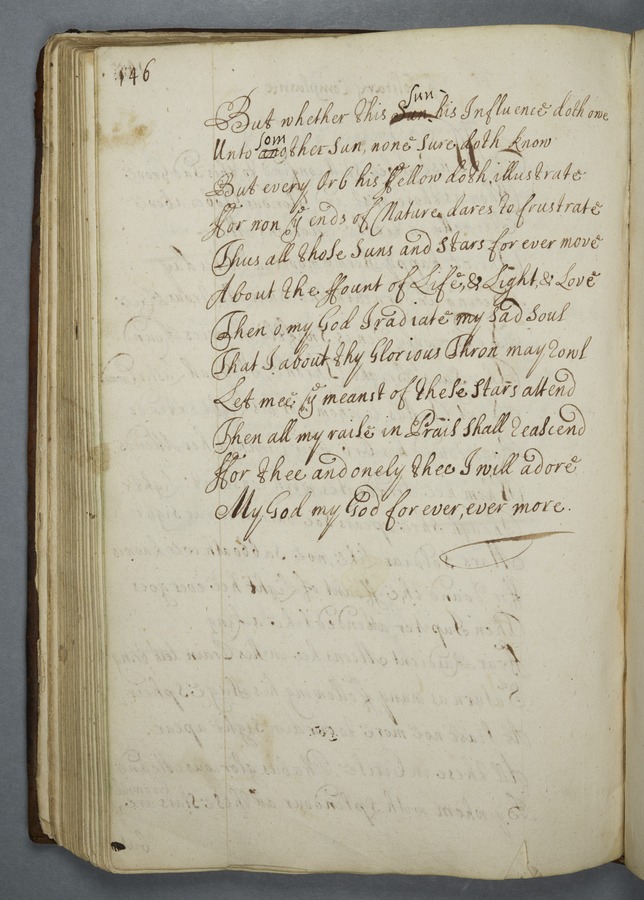 146
But whether this Sun his Influence doth owe
Unto som other Sun, none Sure doth know
But every Orb his ffellow doth illustrate
ffor non ye ends of Nature dares to frustrate
Thus all those Suns and Stars for ever move
About the ffount of Life, & Light, & Love
Then o my God Iradiate my sad Soul
That I about thy Glorious Thron may rowl
Let mee ye meanst of these Stars attend
Then all my raise in Prais shall reascend
ffor thee and onely thee I will adore
My God my God for ever, ever more.